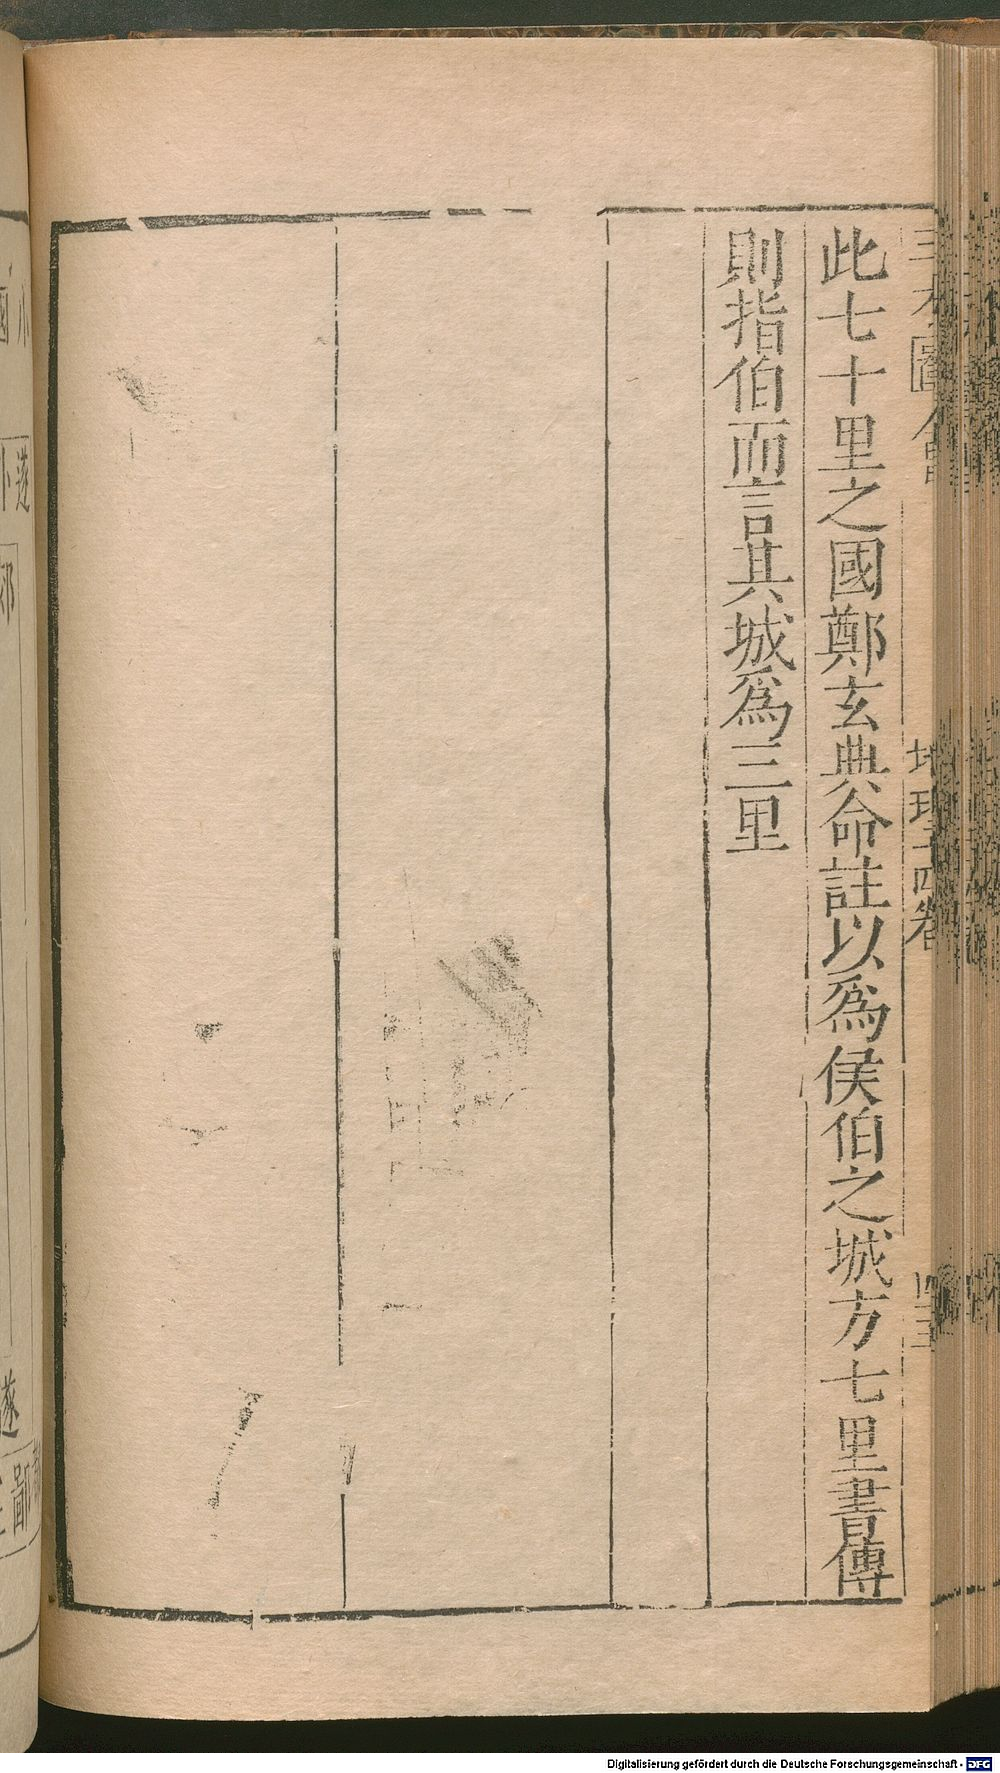 此七十里之國鄭玄典命註以爲侯伯之城方七里書傳
則指伯而言其城爲三里
三才圖會
地理十四卷
遂
郊
遂
鄙
Digitalisierung gefördert durch die Deutsche Forschungsgemeinschaft - DFG